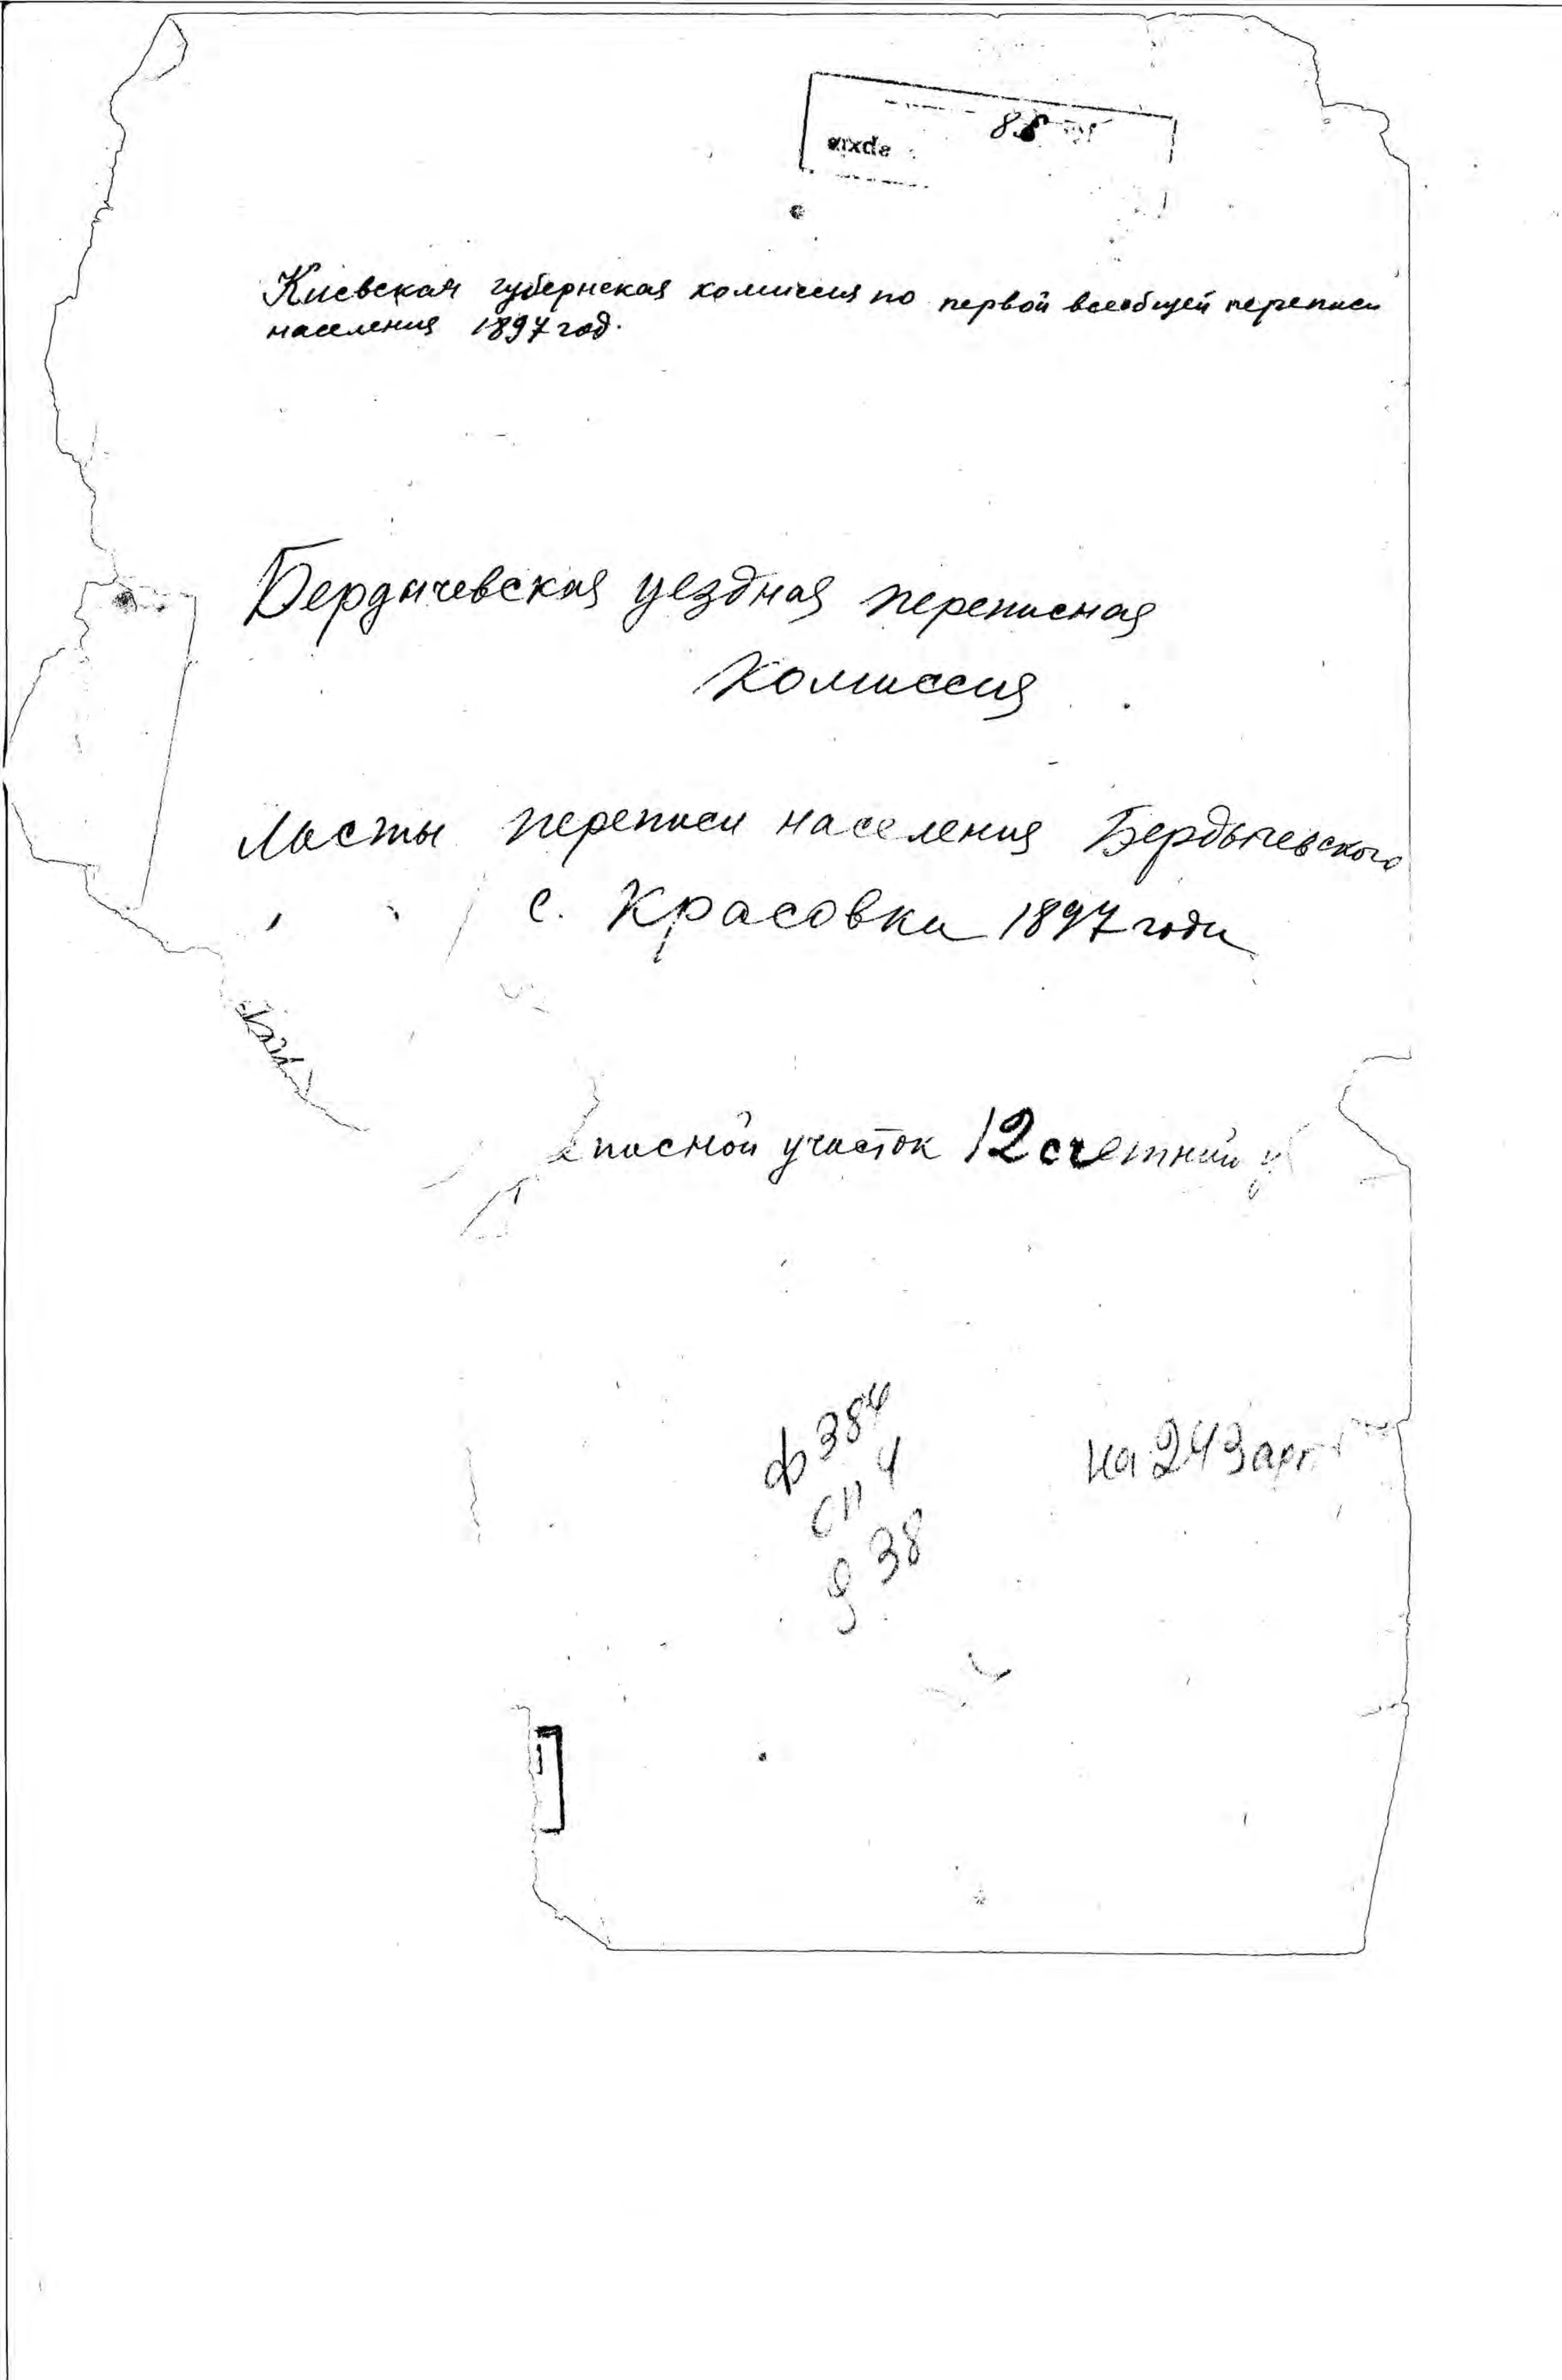 88
Киевская губернская комиссия по первой всеобщей переписи
населения 1897 год.
Бердичевская уездная переписная
комиссия
Листы переписи населения Бердычевского
с. Красовка 1897 года
писной участок 12 счетний у
ф 384
оп 4
д 38
на 243